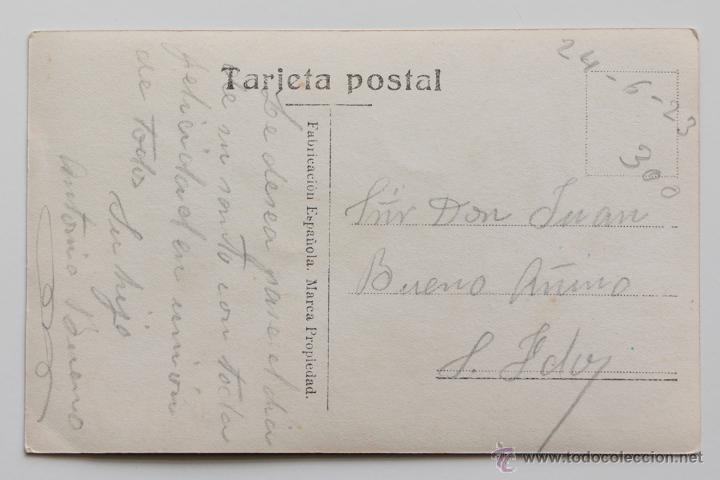 Tarjeta postal
24-6-23
300
Le desea pase el dia
de su santo con toda
felicidad en union
de todos
Su hijo
Antonio Bueno
Fabricación Española. Marca Propiedad.
Sür Don Juan
Bueno
S. Fdo
www.todocoleccion.net